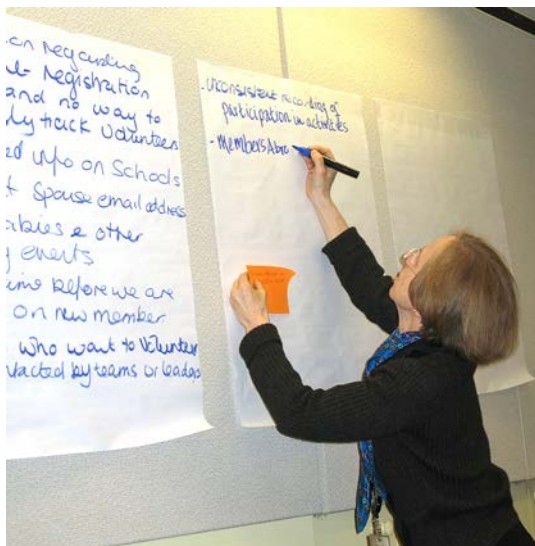 on regarding
registration
and no way to
track volunteers
info on Schools
spouse email address
& other
events
time before we are
on new member
who want to volunteer
by teams or leaders
. inconsistent recording of
participation in activities
- Members Abro